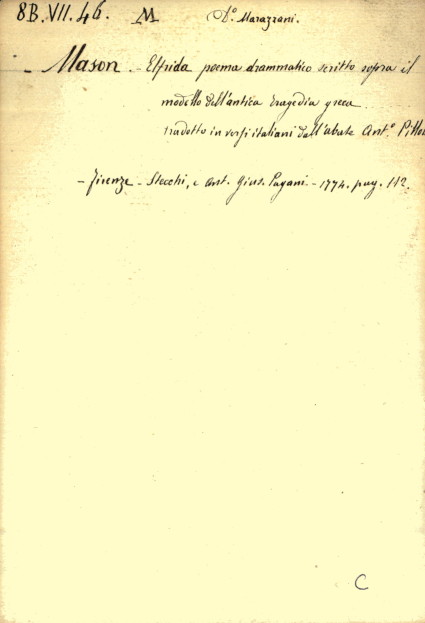 8B.VII.46. M D.º Marazzani.
- Mason - Elfrida poema drammatico scritto sopra il
modello dell'antica tragedia greca
tradotto in versi italiani dall'abate Ant.º
- Firenze - Stecchi, e Ant. Gius. Pagani - 1774. pag. 112.
C